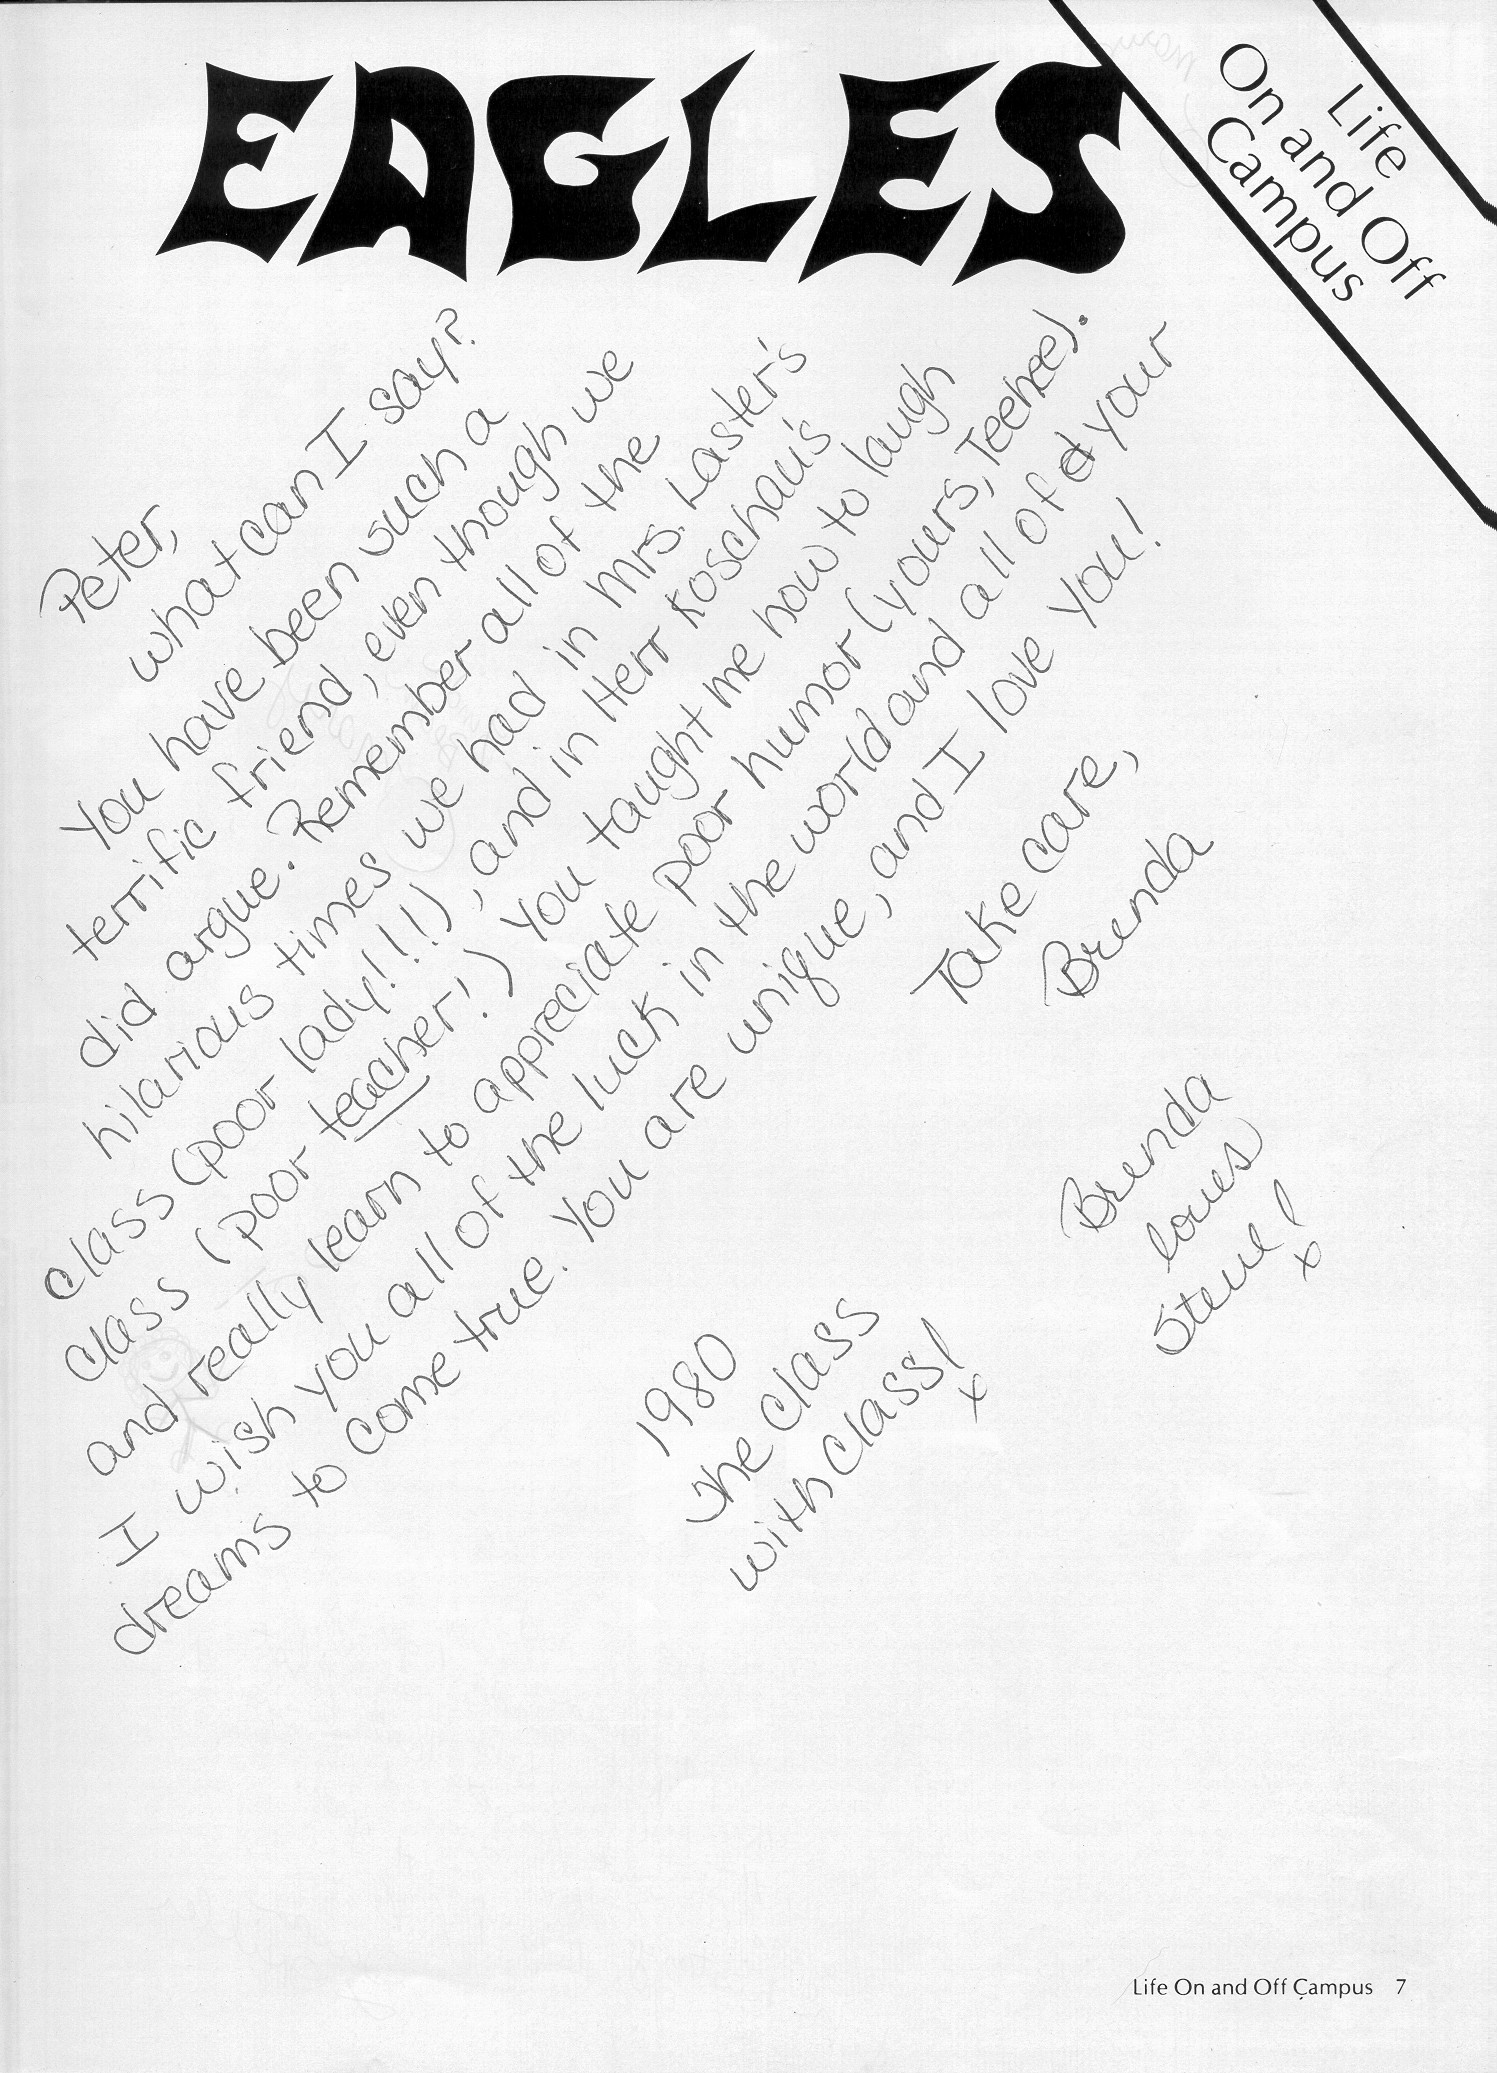 EAGLES
Life
On and Off
Campus
Peter,
what can I say?
You have been such a
terrific friend, even though we
did argue. Remember all of the
hilarious times we had in Mrs. Laster's
class (poor lady!!!), and in Herr Koschau's
class (poor teacher!) You taught me how to laugh
and really learn to appreciate poor humor (yours, Teehee).
I wish you all of the luck in the world and all of your
dreams to come true. You are unique, and I love you!
Take care,
Brenda
Brenda
loves
Steve!
x
1980
The Class
with Class!
x
Life On and Off Campus 7